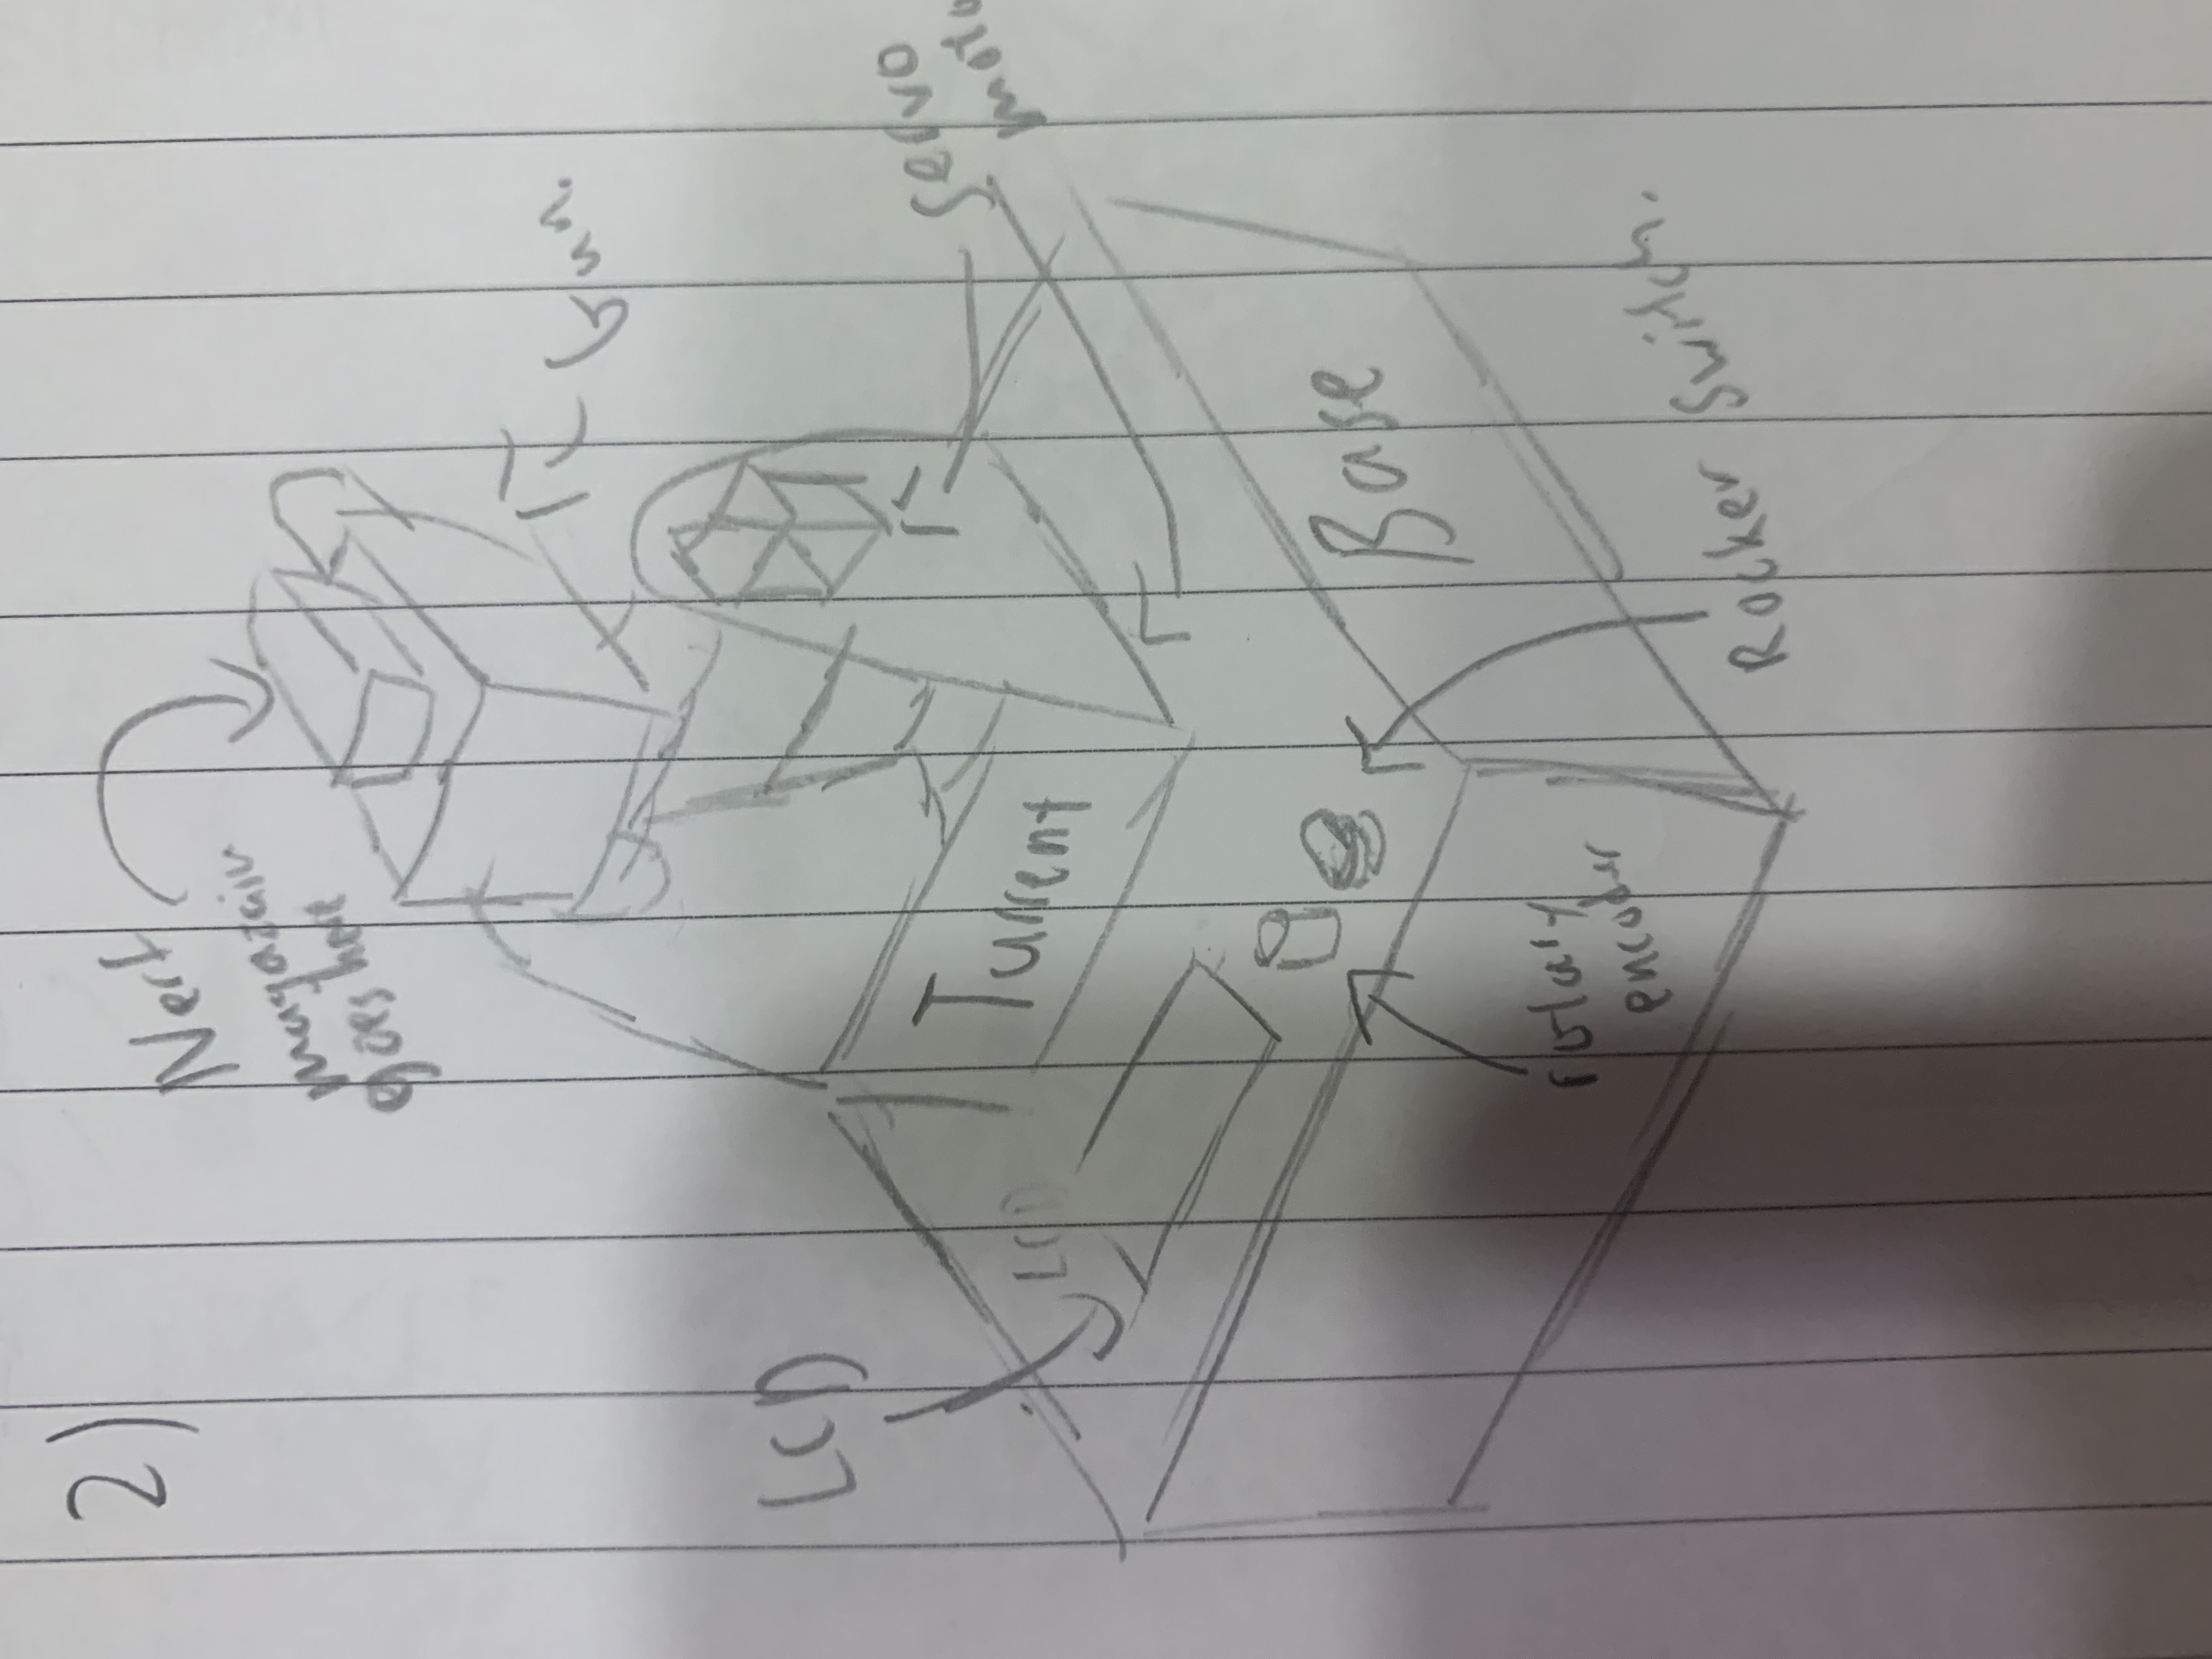 2)
Nerf
magazain
goes here
Gun.
LCD
LCD
Turrent
Servo
moto
Base
rotary
encoder
Rocker Switch.